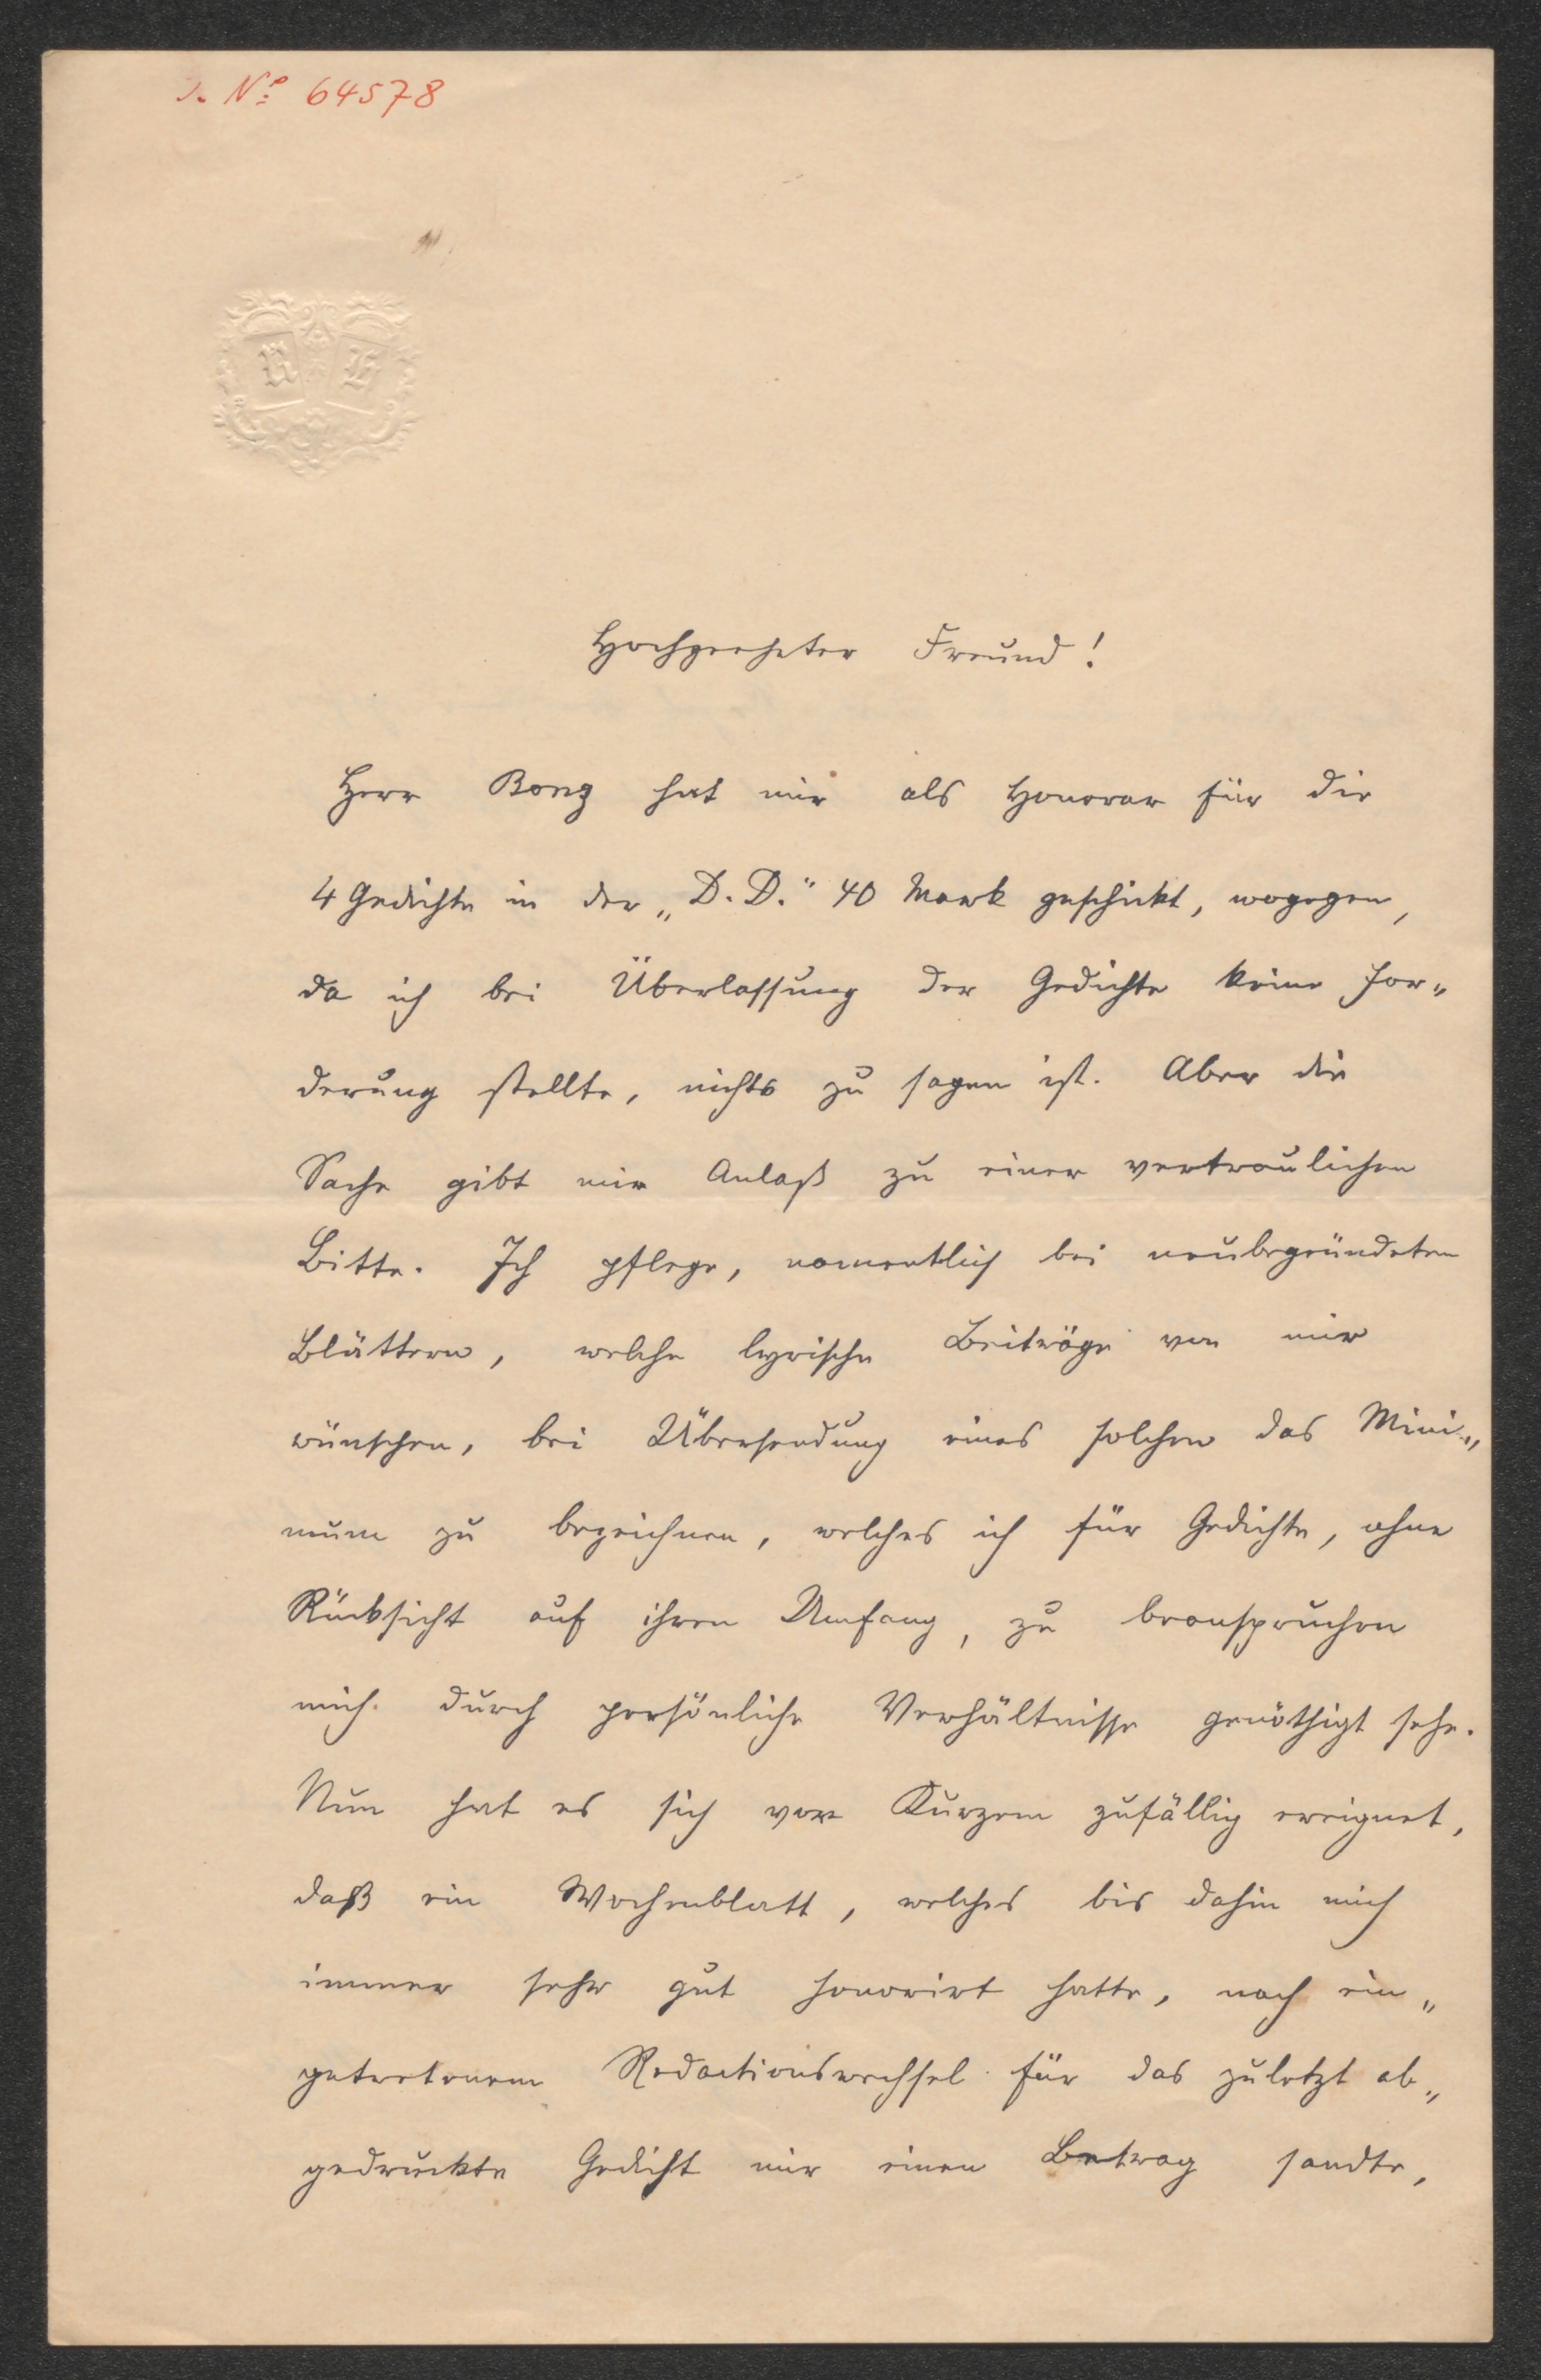 J. Nº 64578
R H
Hochgeehrter Freund!
Herr Bong hat mir als Honorar für die
4 Gedichte in der „D. D.“ 40 Mark geschickt, wogegen,
da ich bei Überlassung der Gedichte keine For„
derung stellte, nichts zu sagen ist. Aber die
Sache gibt mir Anlaß zu einer vertraulichen
Bitte. Ich pflege, namentlich bei neubegründeten
Blättern, welche lyrische Beiträge von mir
wünschen, bei Übersendung eines solchen das Mini„
mum zu bezeichnen, welches ich für Gedichte, ohne
Rücksicht auf ihren Umfang, zu beanspruchen
mich durch persönliche Verhältnisse genöthigt sehe.
Nun hat es sich vor Kurzem zufällig ereignet,
daß ein Wochenblatt, welches bis dahin mich
immer sehr gut honorirt hatte, nach ein„
getretenem Redactionswechsel für das zuletzt ab„
gedruckte Gedicht mir einen Betrag sandte,